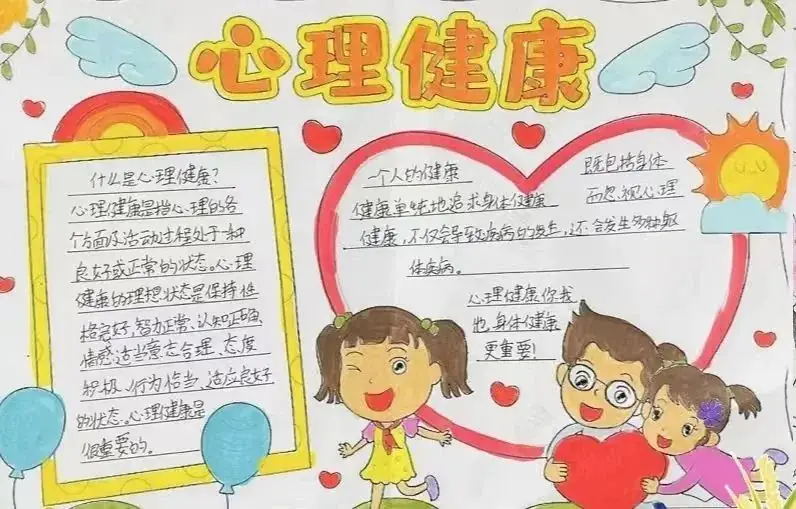 心理健康
什么是心理健康?
心理健康是指心理的各
个方面及活动过程处于一种
良好或正常的状态。心理
健康的理想状态是保持性
格完好、智力正常、认知正确、
情感适当、意志合理、态度
积极、行为恰当、适应良好
的状态。心理健康是
很重要的。
一个人的健康 既包括身体
健康单纯地追求身体健康 而忽视心理
健康,不仅会导致疾病的发生,还会发生多种躯
体疾病。
心理健康你我
他,身体健康
更重要!